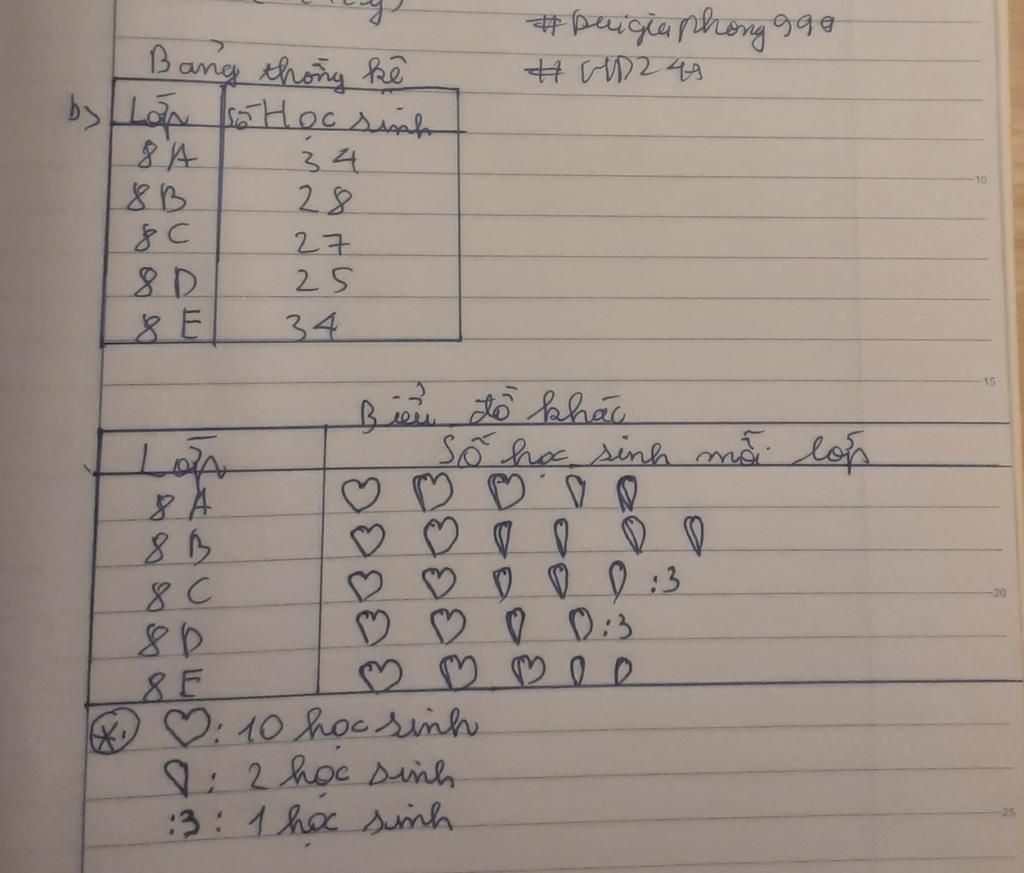 #Daigiaphong999
Bảng thống kê
b>
Lớp Số Học sinh
8A 34
8B 28
8C 27
8D 25
8E 34
10
15
Biểu đồ khác
Lớp Số học sinh mỗi lớp
8A
8B
8C :3
20
8D :3
8E
* ♡: 10 học sinh
: 2 học sinh
:3: 1 học sinh
25